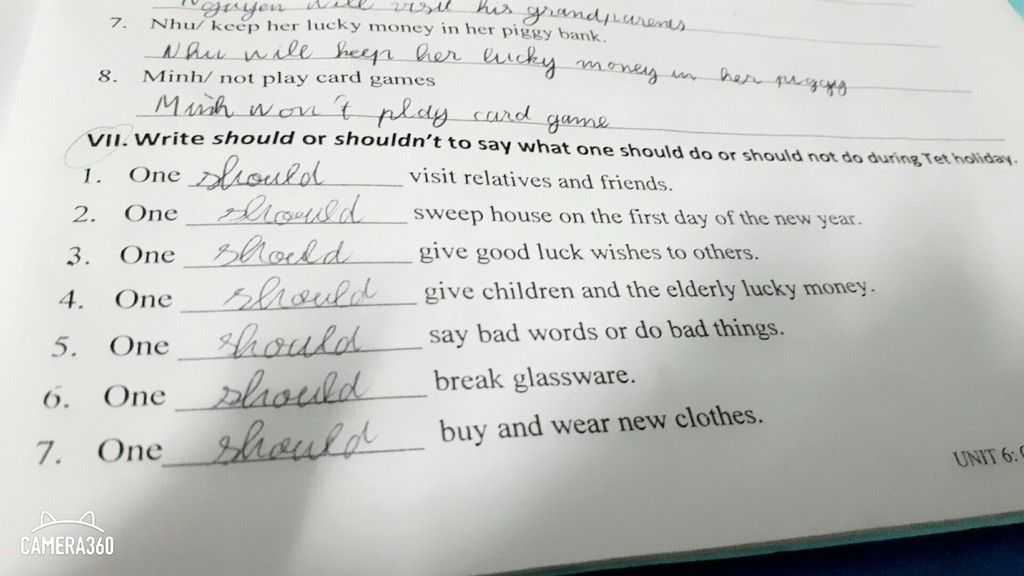 Nguyen will visit his grandparents
7. Nhu/ keep her lucky money in her piggy bank.
Nhu will keep her lucky money in her piggy
8. Minh/ not play card games
Minh won't play card game
VII. Write should or shouldn't to say what one should do or should not do during Tet holiday.
1. One should visit relatives and friends.
2. One should sweep house on the first day of the new year.
3. One should give good luck wishes to others.
4. One should give children and the elderly lucky money.
5. One should say bad words or do bad things.
6. One should break glassware.
7. One should buy and wear new clothes.
UNIT 6:
CAMERA360